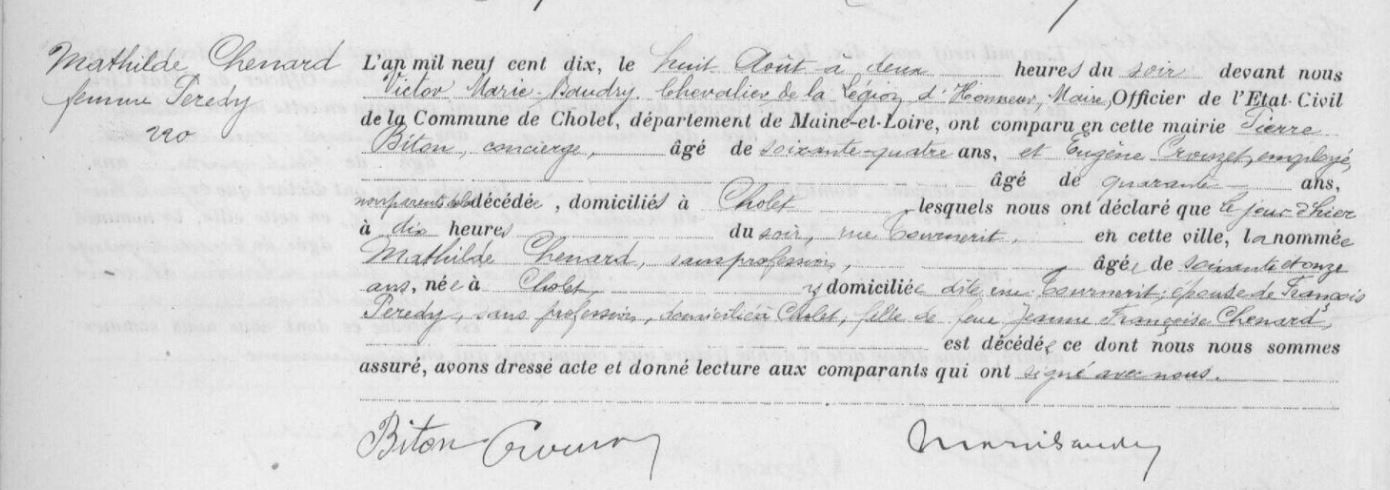 Mathilde Chenard
femme Peredy
L'an mil neuf cent dix, le huit Août à deux heures du soir devant nous
Victor Marie-Baudry, Chevalier de la Légion d'Honneur, Maire, Officier de l'Etat-Civil
de la Commune de Cholet, département de Maine-et-Loire, ont comparu en cette mairie Pierre
Biton, concierge, âgé de soixante-quatre ans, et Eugène Crouzet, employé,
âgé de quarante ans,
non parents de la décédée, domiciliés à Cholet, lesquels nous ont déclaré que le jour d'hier
à dix heures du soir, rue Tournerit, en cette ville, la nommée
Mathilde Chenard, sans profession, âgée de soixante et onze
ans, née à Cholet, y domiciliée dite rue Tournerit, épouse de François
Peredy, sans profession, domicilié à Cholet, fille de feue Jeanne Françoise Chenard,
est décédée ce dont nous nous sommes
assuré, avons dressé acte et donné lecture aux comparants qui ont signé avec nous.
Biton